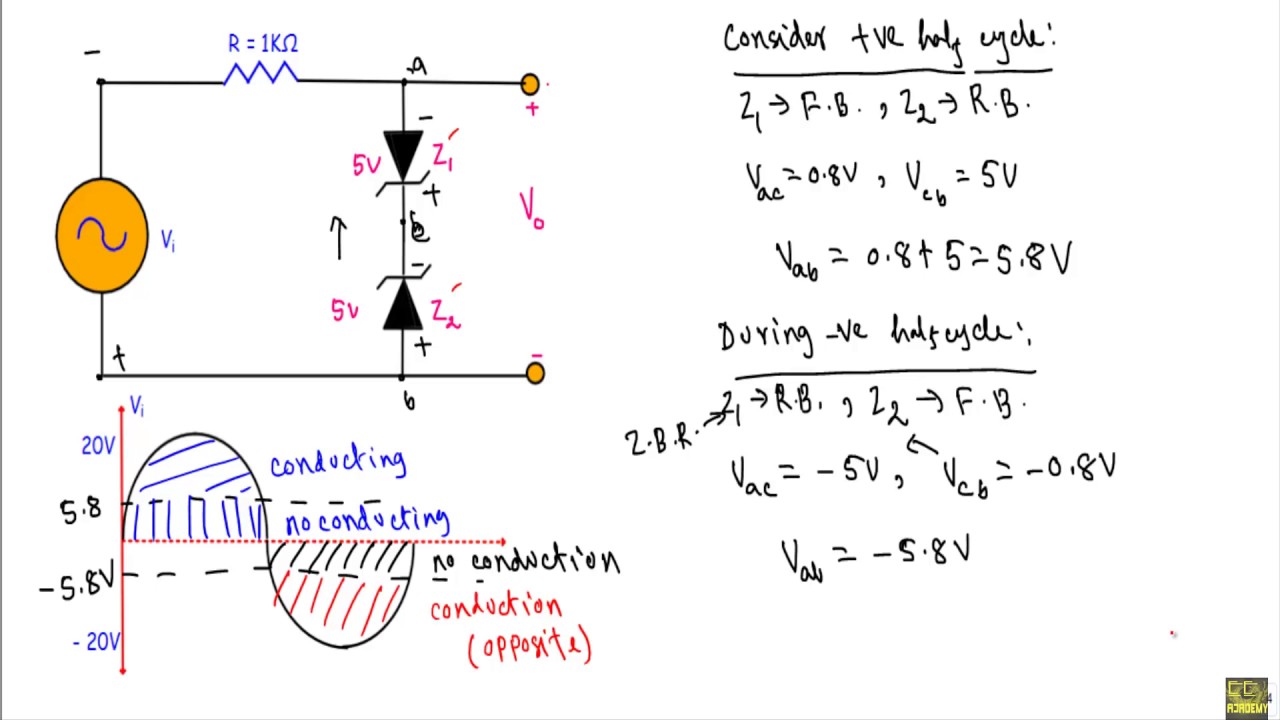 R = 1KΩ
-
a
+
-
5V Z₁
+
c
V₀
Vᵢ
-
5V Z₂
+
+
-
b
Vᵢ
20V
conducting
5.8
no conducting
-5.8V
no conduction
conduction
(opposite)
- 20V
Consider +ve half cycle:
Z₁ → F.B. , Z₂ → R.B.
Vac = 0.8V , Vcb = 5V
Vab = 0.8 + 5 = 5.8V
During -ve half cycle:
Z₁ → R.B. , Z₂ → F.B.
Z.B.R. →
Vac = -5V , Vcb = -0.8V
Vab = -5.8V
EC
ACADEMY
4